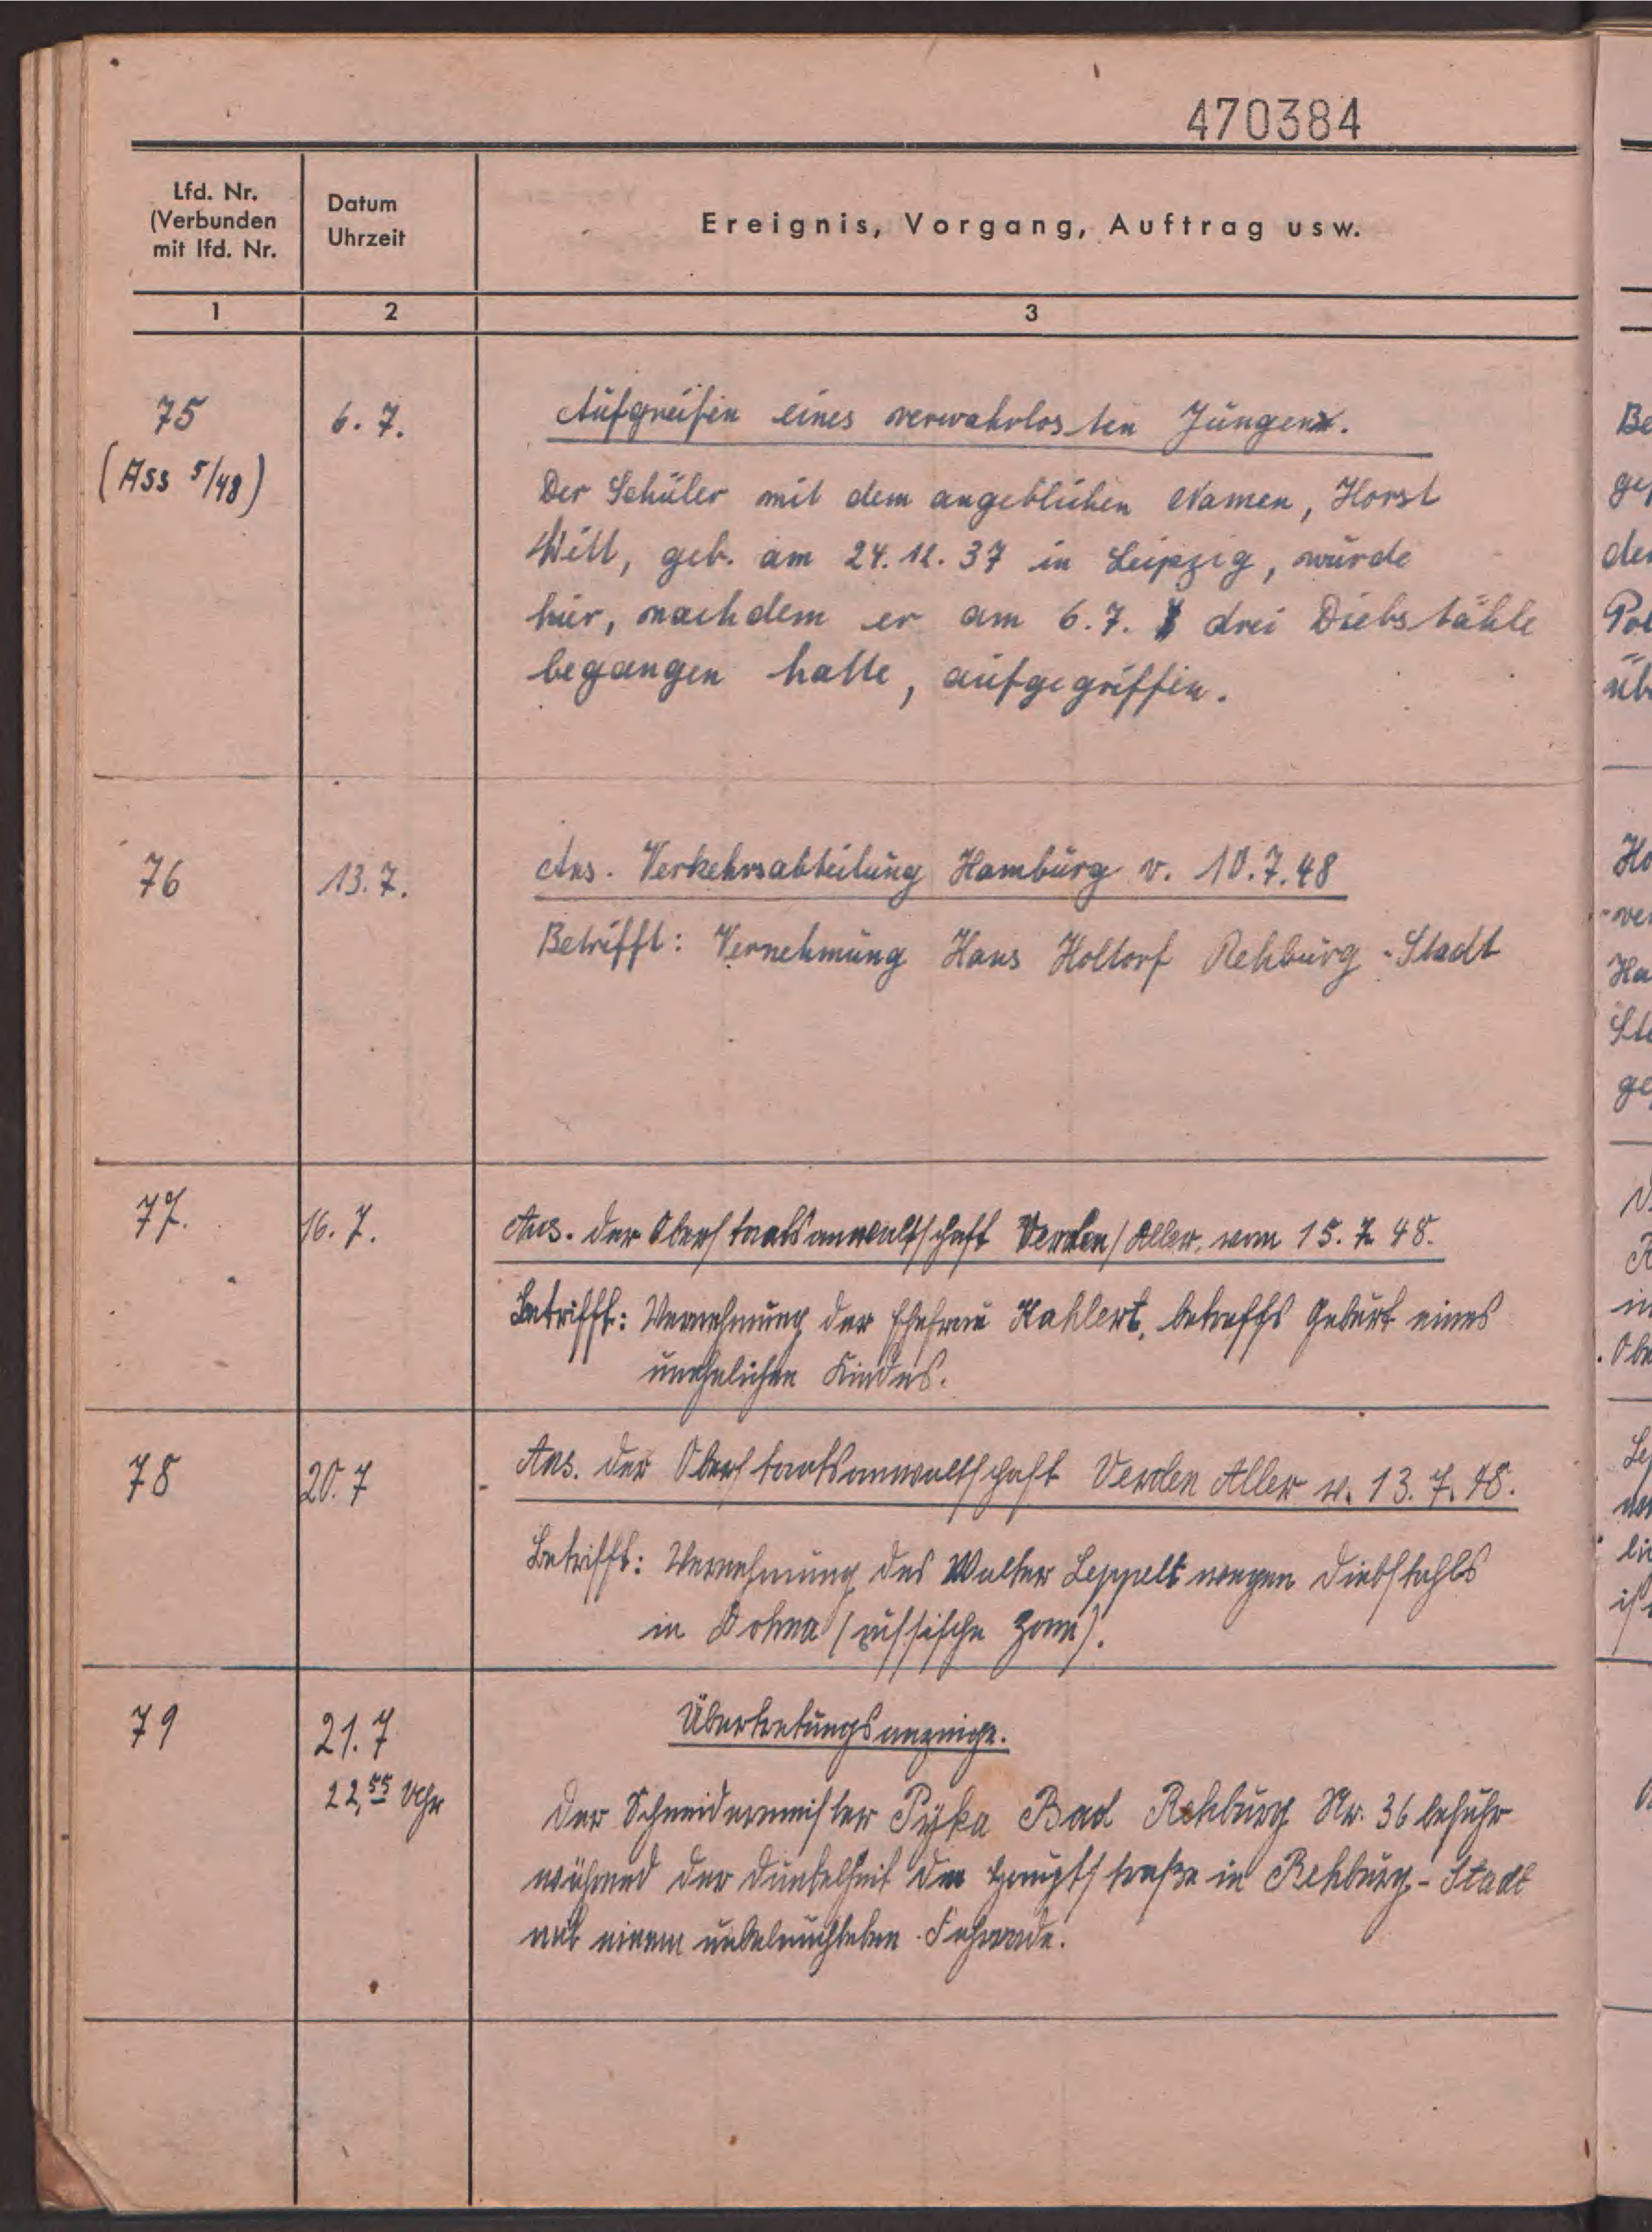 470384
Lfd. Nr.
(Verbunden
mit lfd. Nr.
Datum
Uhrzeit
Ereignis, Vorgang, Auftrag usw.
1 2 3
75 6. 7. Aufgreifen eines verwahrlosten Jungen.
(Ass 5/48) Der Schüler mit dem angeblichen Namen, Horst
Witt, geb. am 24.12.37 in Leipzig, wurde
hier, nachdem er am 6.7. drei Diebstähle
begangen hatte, aufgegriffen.
76 13. 7. Ans. Verkehrsabteilung Hamburg v. 10.7.48
Betrifft: Vernehmung Hans Holtorf Rehburg-Stadt
77. 16. 7. Ans. der Oberstaatsanwaltschaft Verden/Aller. vom 15. 7. 48.
Betrifft: Vernehmung der Ehefrau Kahlert, betreffs Geburt eines
unehelichen Kindes.
78 20. 7 Ans. der Oberstaatsanwaltschaft Verden Aller v. 13. 7. 48.
Betrifft: Vernehmung des Walter Leppelt wegen Diebstahls
in Dohna (russische Zone).
79 21. 7 Übertretungsanzeige.
22,55 Uhr Der Schneidermeister Pyka Bad Rehburg Nr. 36 befuhr
während der Dunkelheit die Hauptstraße in Rehburg-Stadt
mit einem unbeleuchteten Fahrrade.